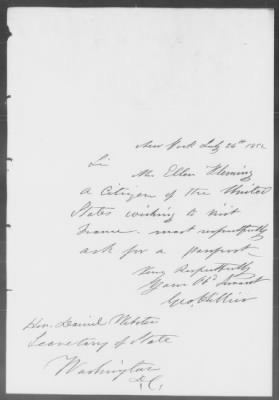 New York July 26th 1852
Sir
Mrs Ellen Fleming
a Citizen of the United
States wishing to visit
France. most respectfully
ask for a passport
Very Respectfully
Your Obt Servant
Geo.
Hon. Daniel Webster
Secretary of State
Washington
D.C.